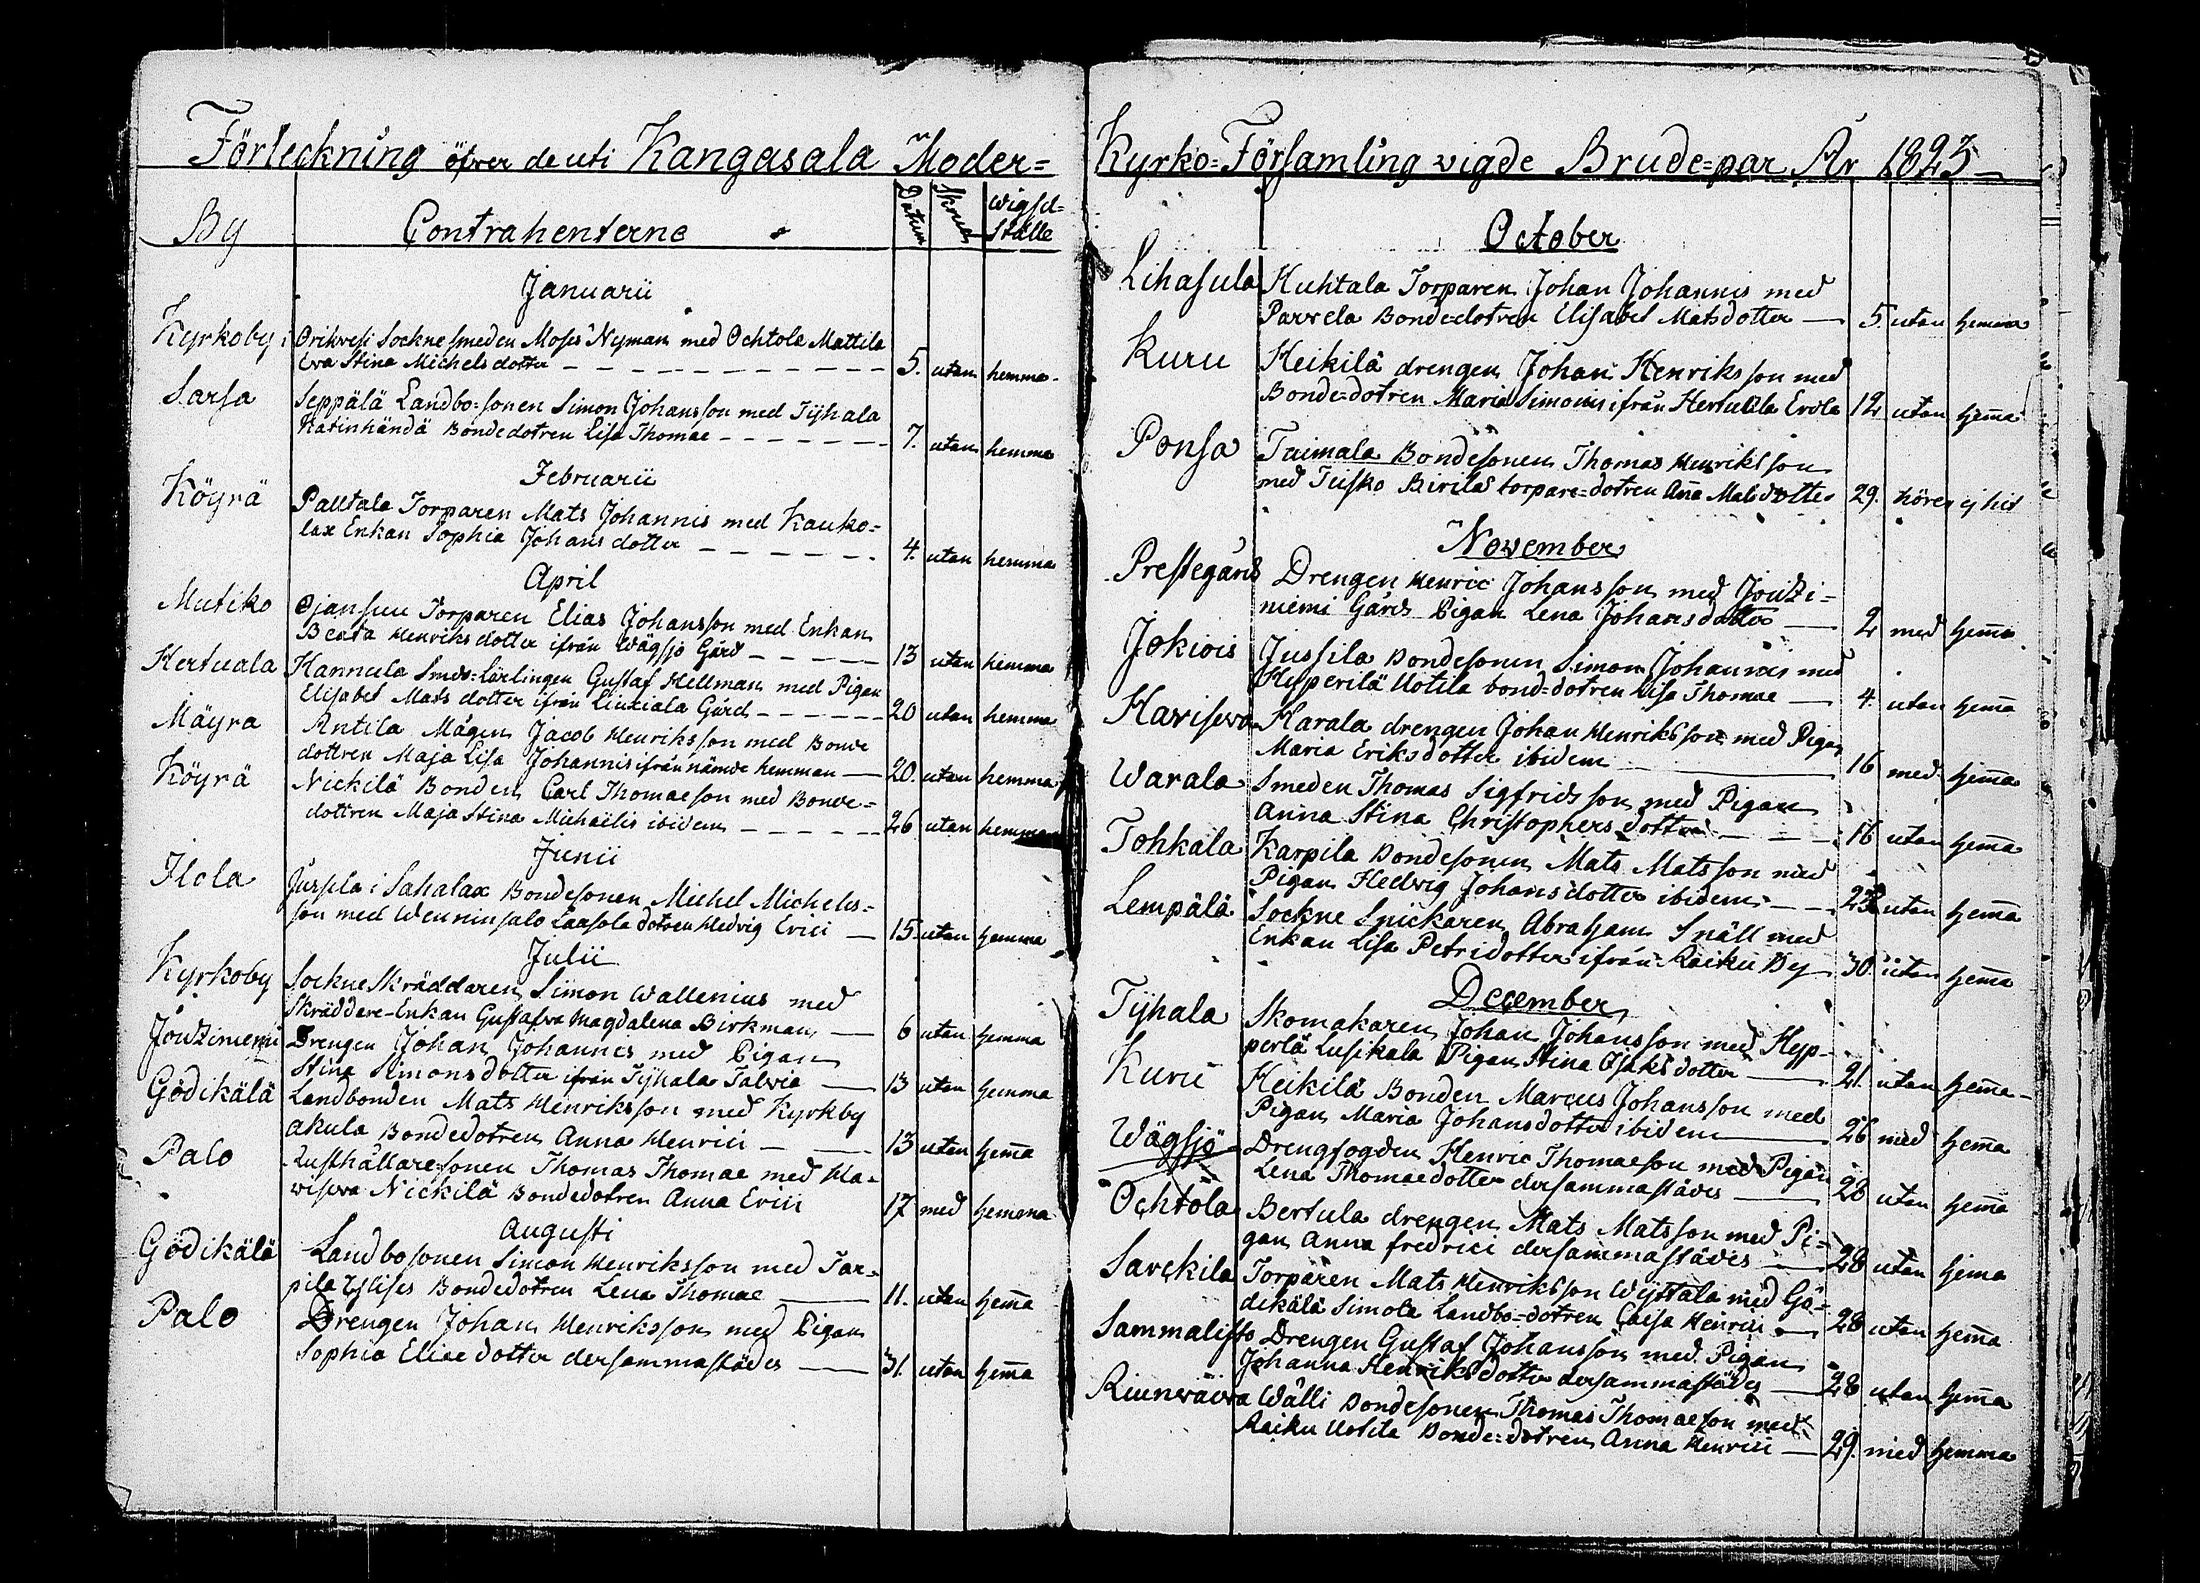 Förteckning öfver de uti Kangasala Moder=
By Contrahenterne Datum Skrud Wigsel=
Ställe
Januarii
Kyrkoby Orivesi Sockne Smeden Moses Nyman med Ochtola Mattila
Eva Stina Michelsdotter 5. utan hemma
Sarsa Seppälä Landbo=sonen Simon Johansson med Tyhala
Katinhändä Bondedotren Lisa Thomae 7. utan hemma
Februarii
Köyrä Pautala Torparen Mats Johannis med Kauko=
lax Enkan Sophia Johansdotter 4. utan hemma
April
Mutiko Ojansuu Torparen Elias Johansson med Enkan
Beata Henriksdotter ifrån Wägsjö Gård 13 utan hemma
Hertuala Hannula Smeds=Lärlingen Gustaf Hellman med Pigan
Elisabet Mats dotter ifrån Liuxiala Gård 20 utan hemma
Mäyra Antila Mågen Jacob Henriksson med Bonde
dottren Maja Lisa Johannis ifrån nämde hemman 20. utan hemma
Köyrä Nickilä Bonden Carl Thomaeson med Bonde=
dottren Maja Stina Michaelis ibidem 26 utan hemma
Junii
Ilola Jussila i Sahalax Bondesonen Michel Michels=
son med Wenninsalo Laasola dotren Hedvig Erici 15 utan hemma
Julii
Kyrkoby Sockne Skräddaren Simon Wallenius med
Skräddare=Enkan Gustafva Magdalena Birkman 6 utan hemma
Joutziniemi Drengen Johan Johannes med Pigan
Stina Simonsdotter ifrån Tyhala Talvia 13 utan hemma
Gödikälä Landbonden Mats Henriksson med Kyrkby
akula Bondedotren Anna Henrici 13 utan hema
Palo Rusthållare=sonen Thomas Thomae med Ha=
viseva Nickilä Bondedotren Anna Erici 17 med hemma
Augusti
Gödikälä Landbosonen Simon Henriksson med Tar=
pila Ylises Bondedotren Lena Thomae 11. utan hema
Palo Drengen Johan Henriksson med Pigan
Sophia Eliaedotter dersammastädes 31. utan hema
Kyrko=Församling vigde Brude=par År 1823
October
Lihasula Huhtala Torparen Johan Johannis med
Parvela Bonde=dotren Elisabet Matsdotter 5 utan hemma
Kuru Heikilä drengen Johan Henriksson med
Bonde=dotren Maria Simonis ifrån Hertuala Erola 12 utan hema
Ponsa Tuimala Bondesonen Thomas Henriksson
med Tusko Birilas torpare=dotren Ana Matsdotter 29. hörer ej hit
November
Prestegård Drengen Henric Johansson med Joutzi=
niemi Gårds Pigan Lena Johansdotter 2 med hema
Jokiois Jussila Bondesonen Simon Johannis med
Hyperilä Uotila bond=dotren Lisa Thomae 4. utan hema
Haviseva Harala drengen Johan Henriksson med Pigan
Maria Eriksdotter ibidem 16 med hema
Warala Smeden Thomas Sigfridsson med Pigan
Anna Stina Christophers dotter 16 utan hema
Tohkala Karpila Bondesonen Mats Matsson med
Pigan Hedvig Johansdotter ibidem 23 utan hema
Lempälä Sockne Snickaren Abraham Snäll med
Enkan Lisa Petridotter ifrån Raiku By 30. utan hema
December
Tyhala Skomakaren Johan Johansson med Hyp=
perlä Lusikala Pigan Stina Isaks dotter 21. utan hema
Kuru Heikilä Bonden Marcus Johansson med
Pigan Maria Johansdotter ibidem 26 med hema
Wägsjö Drengfogden Henric Thomaeson med Pigan
Lena Thomaedotter dersammastädes 28 utan hema
Ochtola Bertula drengen Mats Matsson med Pi=
gan Anna fredrici dersammastädes 28 utan hema
Savckila Torparen Mats Henriksson Wystala med Gö=
dikälä Simola Landbo=dotren Caisa Henrici 28 utan hema
Sammalisto Drengen Gustaf Johansson med Pigan
Johanna Henriksdotter dersammastädes 28 utan hema
Riunvaiva Wälli Bondesonen Thomas Thomaeson med
Raiku Uotila Bonde=dotren Anna Henrici 29. med hemma